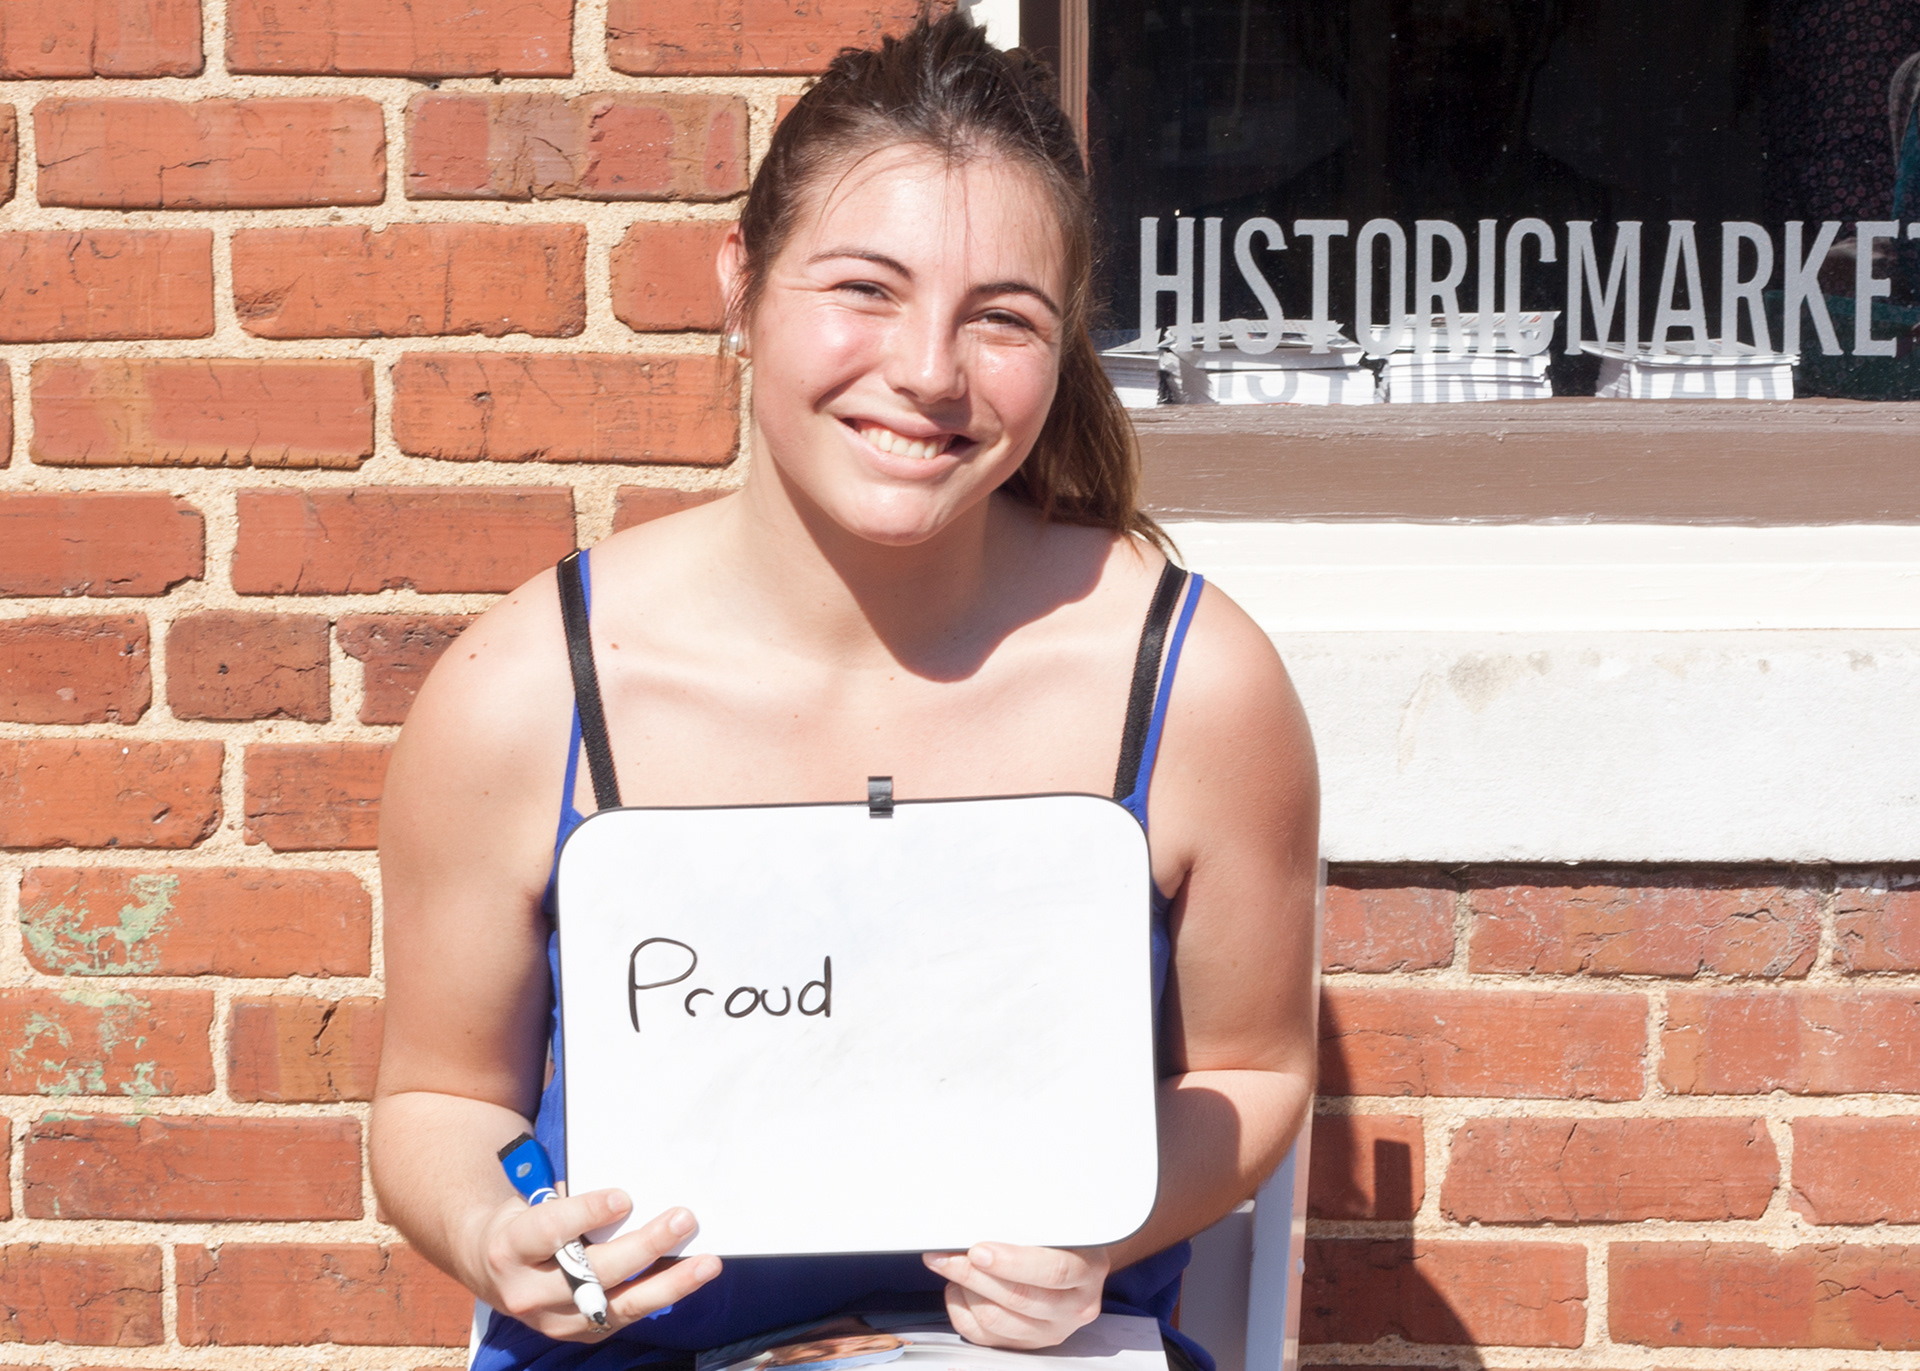 HISTORICMARKET
Proud